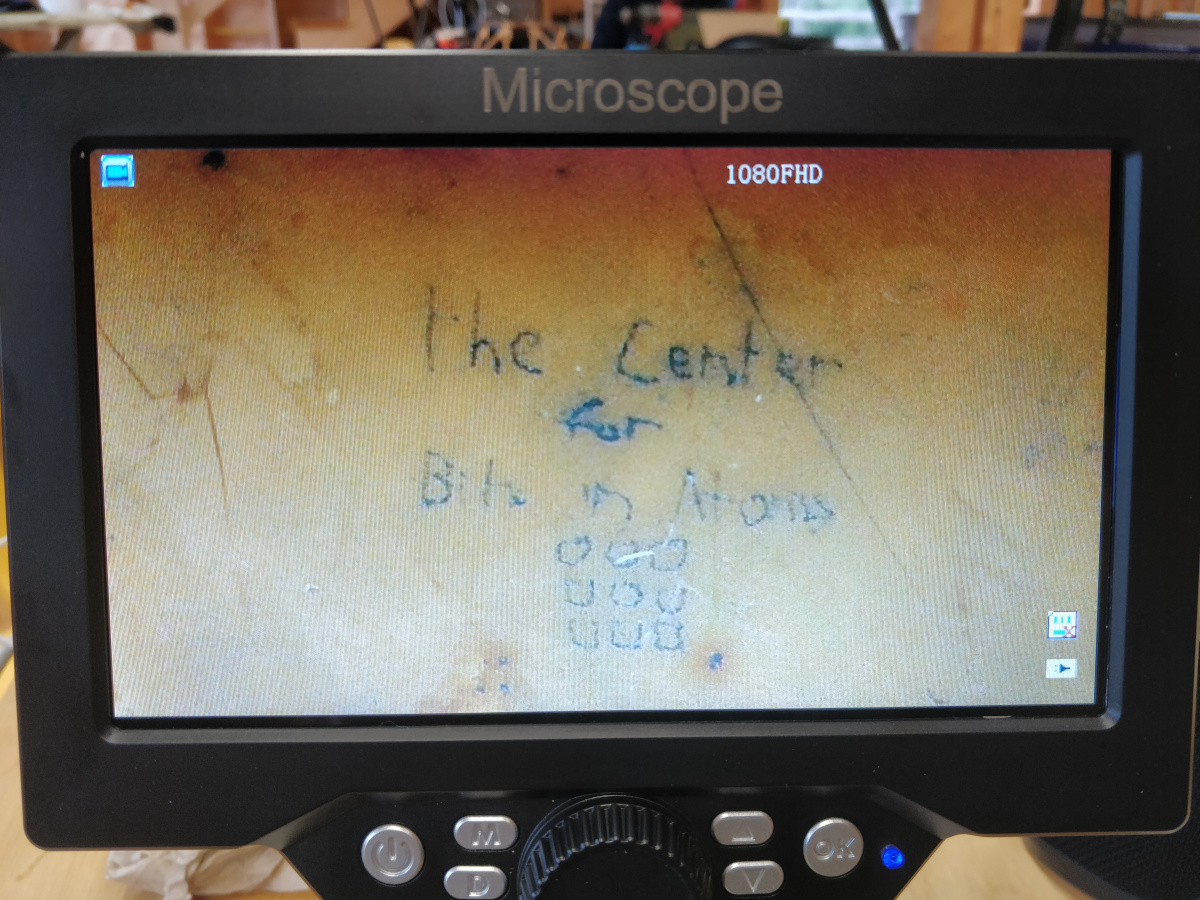 Microscope
1080FHD
The Center
for
Bits in Atoms
M
D
OK